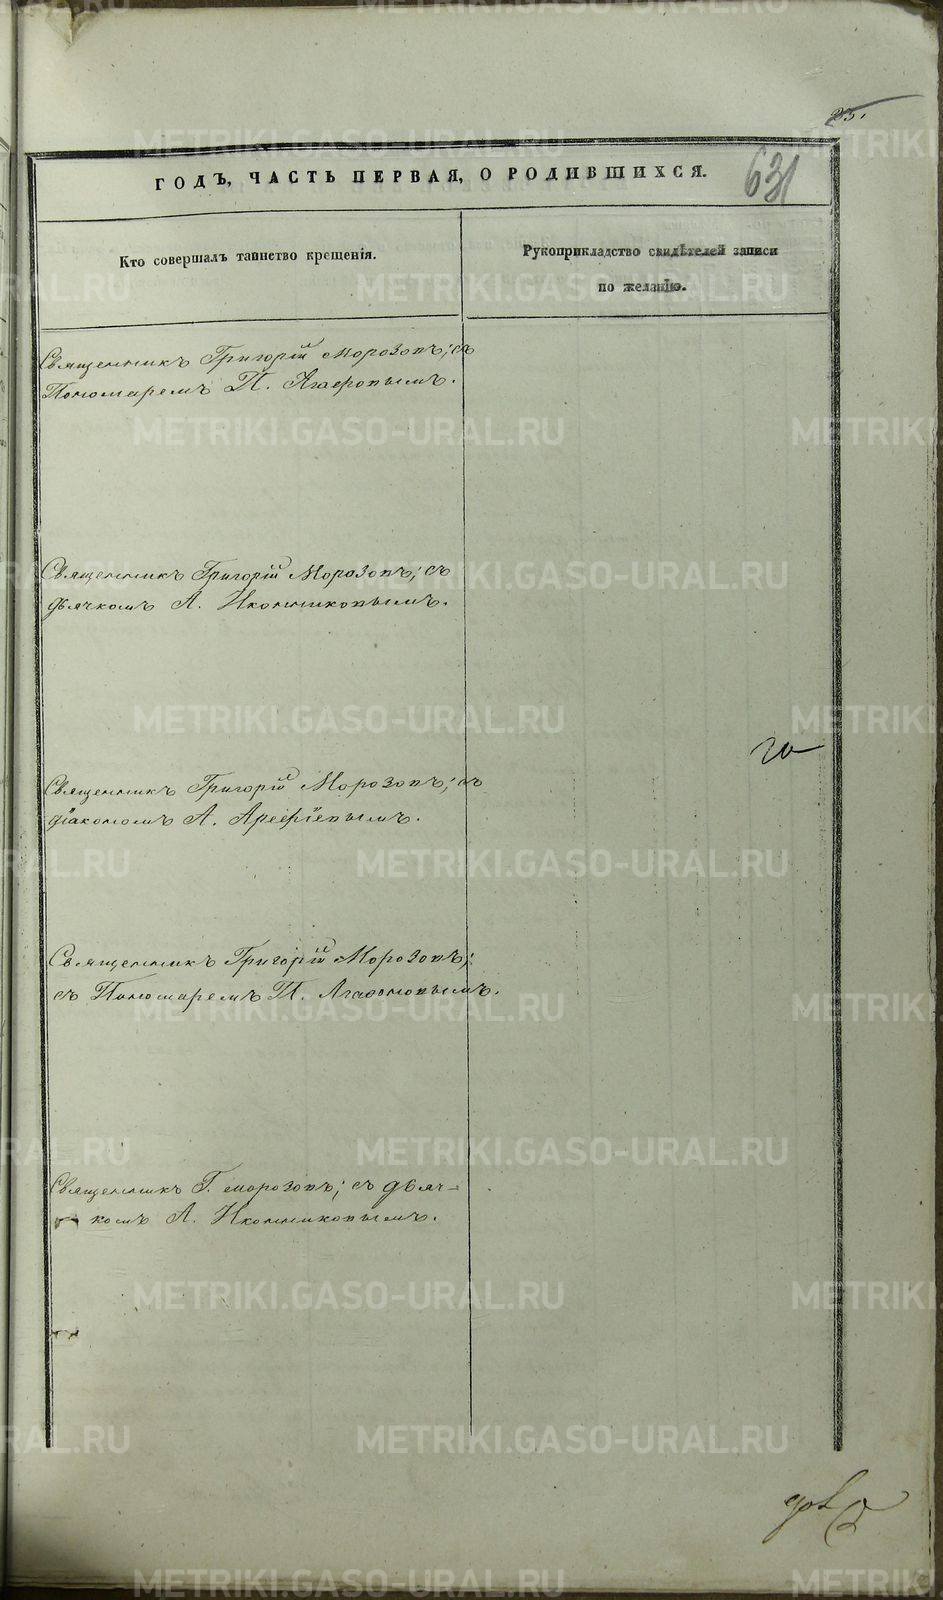 35.
631
ГОДЪ, ЧАСТЬ ПЕРВАЯ, О РОДИВШИХСЯ.
Кто совершалъ таинство крещенія.
Рукоприкладство свидѣтелей записи
по желанію.
Священникъ Григорій Морозовъ; съ
Пономаремъ П.
Священникъ Григорій Морозовъ; съ
дьячкомъ А. Иконниковымъ.
Священникъ Григорій Морозовъ; съ
діакономъ А. Арефіевымъ.
Священникъ Григорій Морозовъ;
съ Пономаремъ П. Агафоновымъ.
Священникъ Г. Морозовъ; съ дьяч-
комъ А. Иконниковымъ.
METRIKI.GASO-URAL.RU